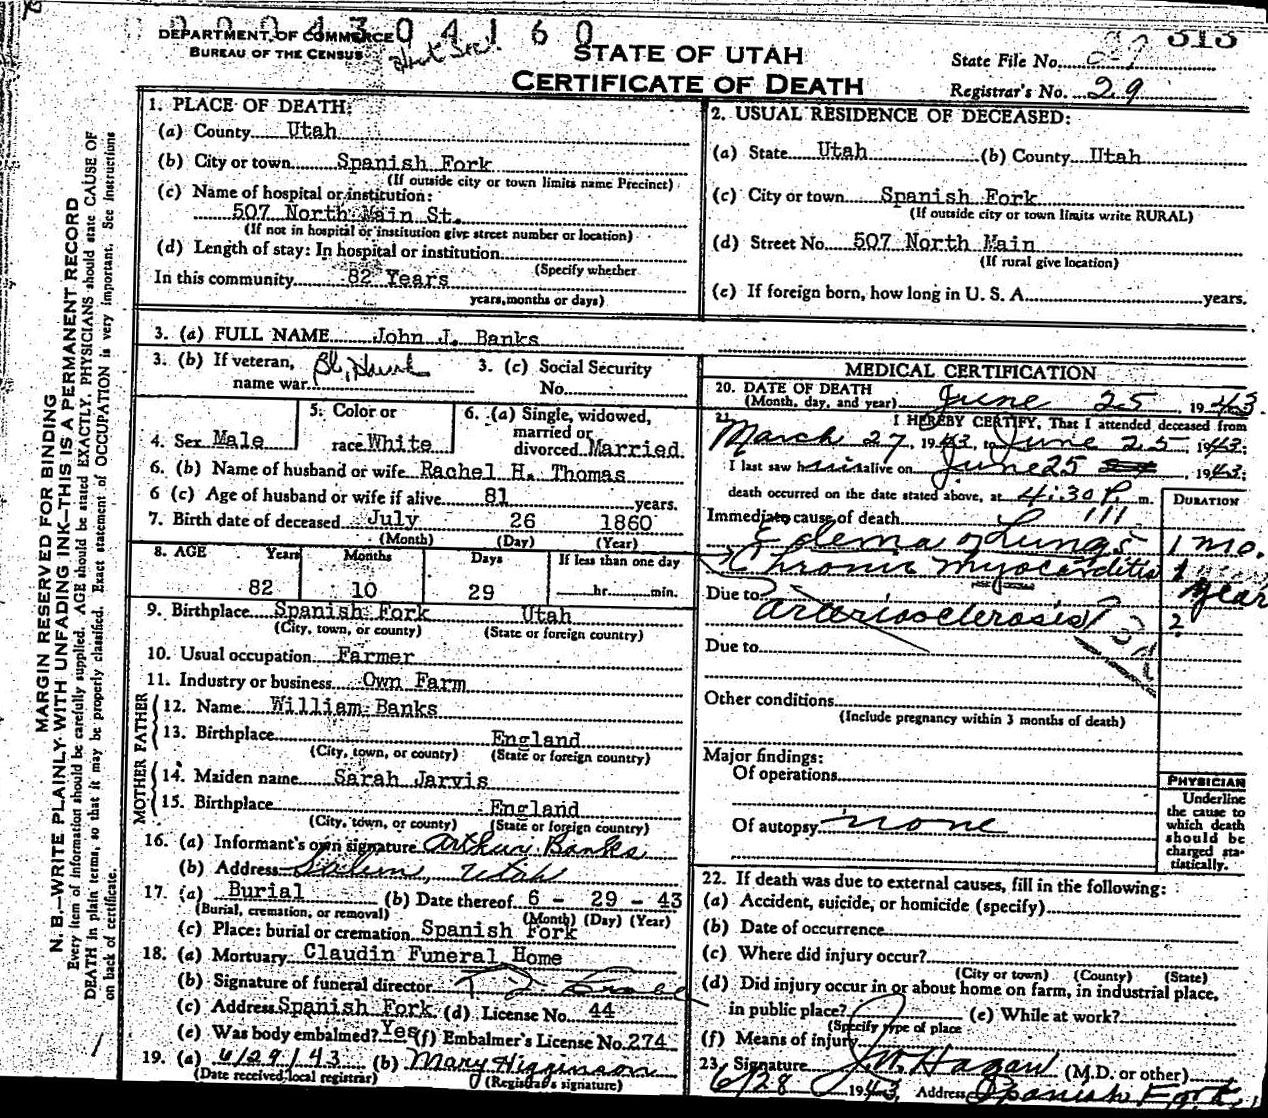 0 0 0 4 3 0 4 1 6 0
313
DEPARTMENT OF COMMERCE
BUREAU OF THE CENSUS
STATE OF UTAH
CERTIFICATE OF DEATH
State File No.
Registrar's No. 29
MARGIN RESERVED FOR BINDING
N. B.—WRITE PLAINLY WITH UNFADING INK—THIS IS A PERMANENT RECORD
Every item of information should be carefully supplied. AGE should be stated EXACTLY. PHYSICIANS should state CAUSE OF
DEATH in plain terms, so that it may be properly classified. Exact statement of OCCUPATION is very important. See instructions
on back of certificate.
1. PLACE OF DEATH:
(a) County Utah
(b) City or town Spanish Fork
(If outside city or town limits name Precinct)
(c) Name of hospital or institution:
507 North Main St.
(If not in hospital or institution give street number or location)
(d) Length of stay: In hospital or institution
(Specify whether
In this community 82 Years
years, months or days)
2. USUAL RESIDENCE OF DECEASED:
(a) State Utah (b) County Utah
(c) City or town Spanish Fork
(If outside city or town limits write RURAL)
(d) Street No. 507 North Main
(If rural give location)
(e) If foreign born, how long in U. S. A. years.
3. (a) FULL NAME John J. Banks
3. (b) If veteran, name war
3. (c) Social Security No.
4. Sex Male
5. Color or race White
6. (a) Single, widowed, married or divorced Married
6. (b) Name of husband or wife Rachel H. Thomas
6 (c) Age of husband or wife if alive 81 years.
7. Birth date of deceased July 26 1860
(Month) (Day) (Year)
8. AGE Years Months Days If less than one day
82 10 29 hr. min.
9. Birthplace Spanish Fork Utah
(City, town, or county) (State or foreign country)
10. Usual occupation Farmer
11. Industry or business Own Farm
FATHER
12. Name William Banks
13. Birthplace England
(City, town, or county) (State or foreign country)
MOTHER
14. Maiden name Sarah Jarvis
15. Birthplace England
(City, town, or county) (State or foreign country)
16. (a) Informant's own signature Arthur Banks
(b) Address Salem, Utah
17. (a) Burial (b) Date thereof 6 - 29 - 43
(Burial, cremation, or removal) (Month) (Day) (Year)
(c) Place: burial or cremation Spanish Fork
18. (a) Mortuary Claudin Funeral Home
(b) Signature of funeral director
(c) Address Spanish Fork (d) License No. 44
(e) Was body embalmed? Yes (f) Embalmer's License No. 274
19. (a) 6/29/43 (b) Mary Higginson
(Date received local registrar) (Registrar's signature)
MEDICAL CERTIFICATION
20. DATE OF DEATH
(Month, day, and year) June 25, 1943.
21. I HEREBY CERTIFY, That I attended deceased from
March 27, 1943, to June 25, 1943;
I last saw him alive on June 25, 1943;
death occurred on the date stated above, at 4:30 P. m.
DURATION
Immediate cause of death 111
Edema of Lungs 1 mo.
Chronic myocarditis 1 year
Due to Arteriosclerosis ?
Due to
Other conditions
(Include pregnancy within 3 months of death)
Major findings:
Of operations
Of autopsy none
PHYSICIAN
Underline
the cause to
which death
should be
charged sta-
tistically.
22. If death was due to external causes, fill in the following:
(a) Accident, suicide, or homicide (specify)
(b) Date of occurrence
(c) Where did injury occur?
(City or town) (County) (State)
(d) Did injury occur in or about home on farm, in industrial place,
in public place? (e) While at work?
(Specify type of place
(f) Means of injury
23. Signature J. W. Hagan (M.D. or other)
6/28 1943, Address Spanish Fork,